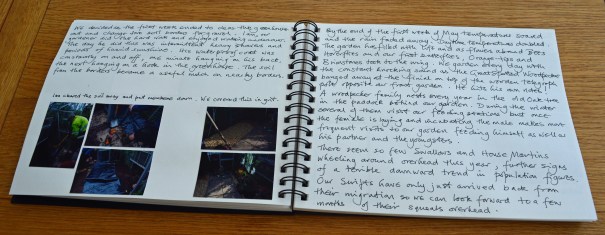 We decided in the first week ended to clear the greenhouse
out and change soil and borders for gravel. Ian, our
gardener did the hard work and enjoyed watery sunshine.
The day he did this was intermittent heavy showers and
periods of liquid sunshine. His waterproof coat was
constantly on and off, one minute hanging on his back,
next hanging on a hook in the greenhouse. The soil
from the borders became a useful mulch on nearby borders.
Ian cleared the soil away and put membrane down. We covered this in grit.
By the end of the first week of May temperatures soared
and the rain faded away. Daytime temperatures doubled.
The garden has filled with life and as flowers abound Bees
Hoverflies and our first butterflies, Orange-tips and
Brimstones took to the wing. We garden along with
the constant drumming sound as the Great Spotted Woodpecker
banged away at the finial on top of the wooden telegraph
pole opposite our front garden. He hits his own notes!
A woodpecker family nests every year in the old Oak tree
in the paddock behind our garden. During the winter
several of them visit our feeding stations but once
the female is laying and incubating the male makes most
frequent visits to our garden feeding himself as well as
his partner and the youngsters.
There seem so few Swallows and House Martins
wheeling around overhead this year, further signs
of a terrible downward trend in population figures.
Our Swifts have only just arrived back from
their migration so we can look forward to a few
months of their squeals overhead.